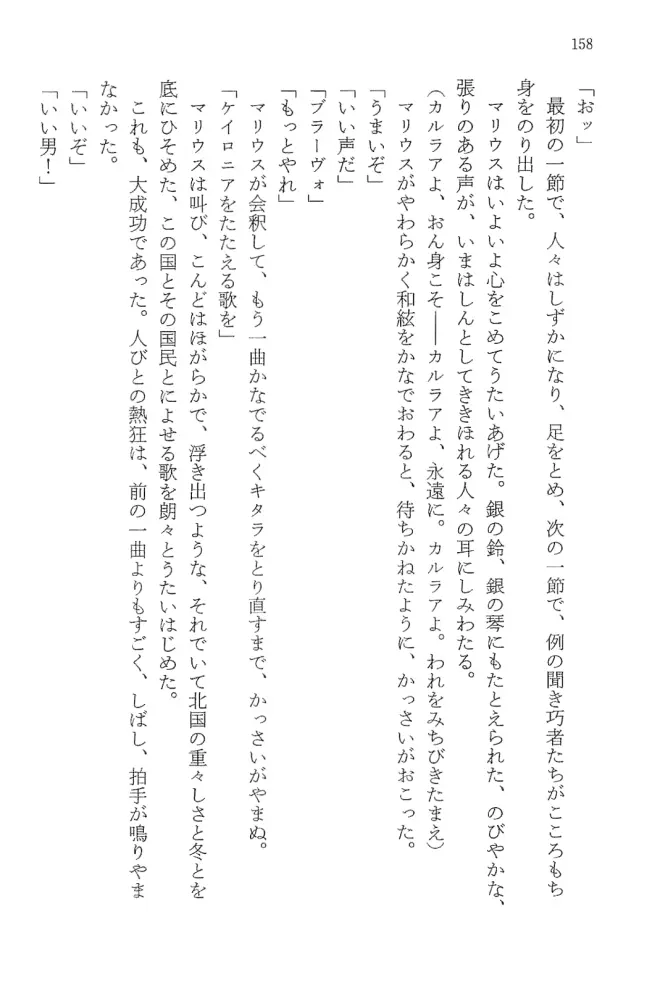 158
「おッ」
最初の一節で、人々はしずかになり、足をとめ、次の一節で、例の聞き巧者たちがこころもち
身をのり出した。
マリウスはいよいよ心をこめてうたいあげた。銀の鈴、銀の琴にもたとえられた、のびやかな、
張りのある声が、いまはしんとしてききほれる人々の耳にしみわたる。
(カルラアよ、おん身こそ――カルラアよ、永遠に。カルラアよ。われをみちびきたまえ)
マリウスがやわらかく和絃をかなでおわると、待ちかねたように、かっさいがおこった。
「うまいぞ」
「いい声だ」
「ブラーヴォ」
「もっとやれ」
マリウスが会釈して、もう一曲かなでるべくキタラをとり直すまで、かっさいがやまぬ。
「ケイロニアをたたえる歌を」
マリウスは叫び、こんどはほがらかで、浮き出つような、それでいて北国の重々しさと冬とを
底にひそめた、この国とその国民とによせる歌を朗々とうたいはじめた。
これも、大成功であった。人びとの熱狂は、前の一曲よりもすごく、しばし、拍手が鳴りやま
なかった。
「いいぞ」
「いい男!」